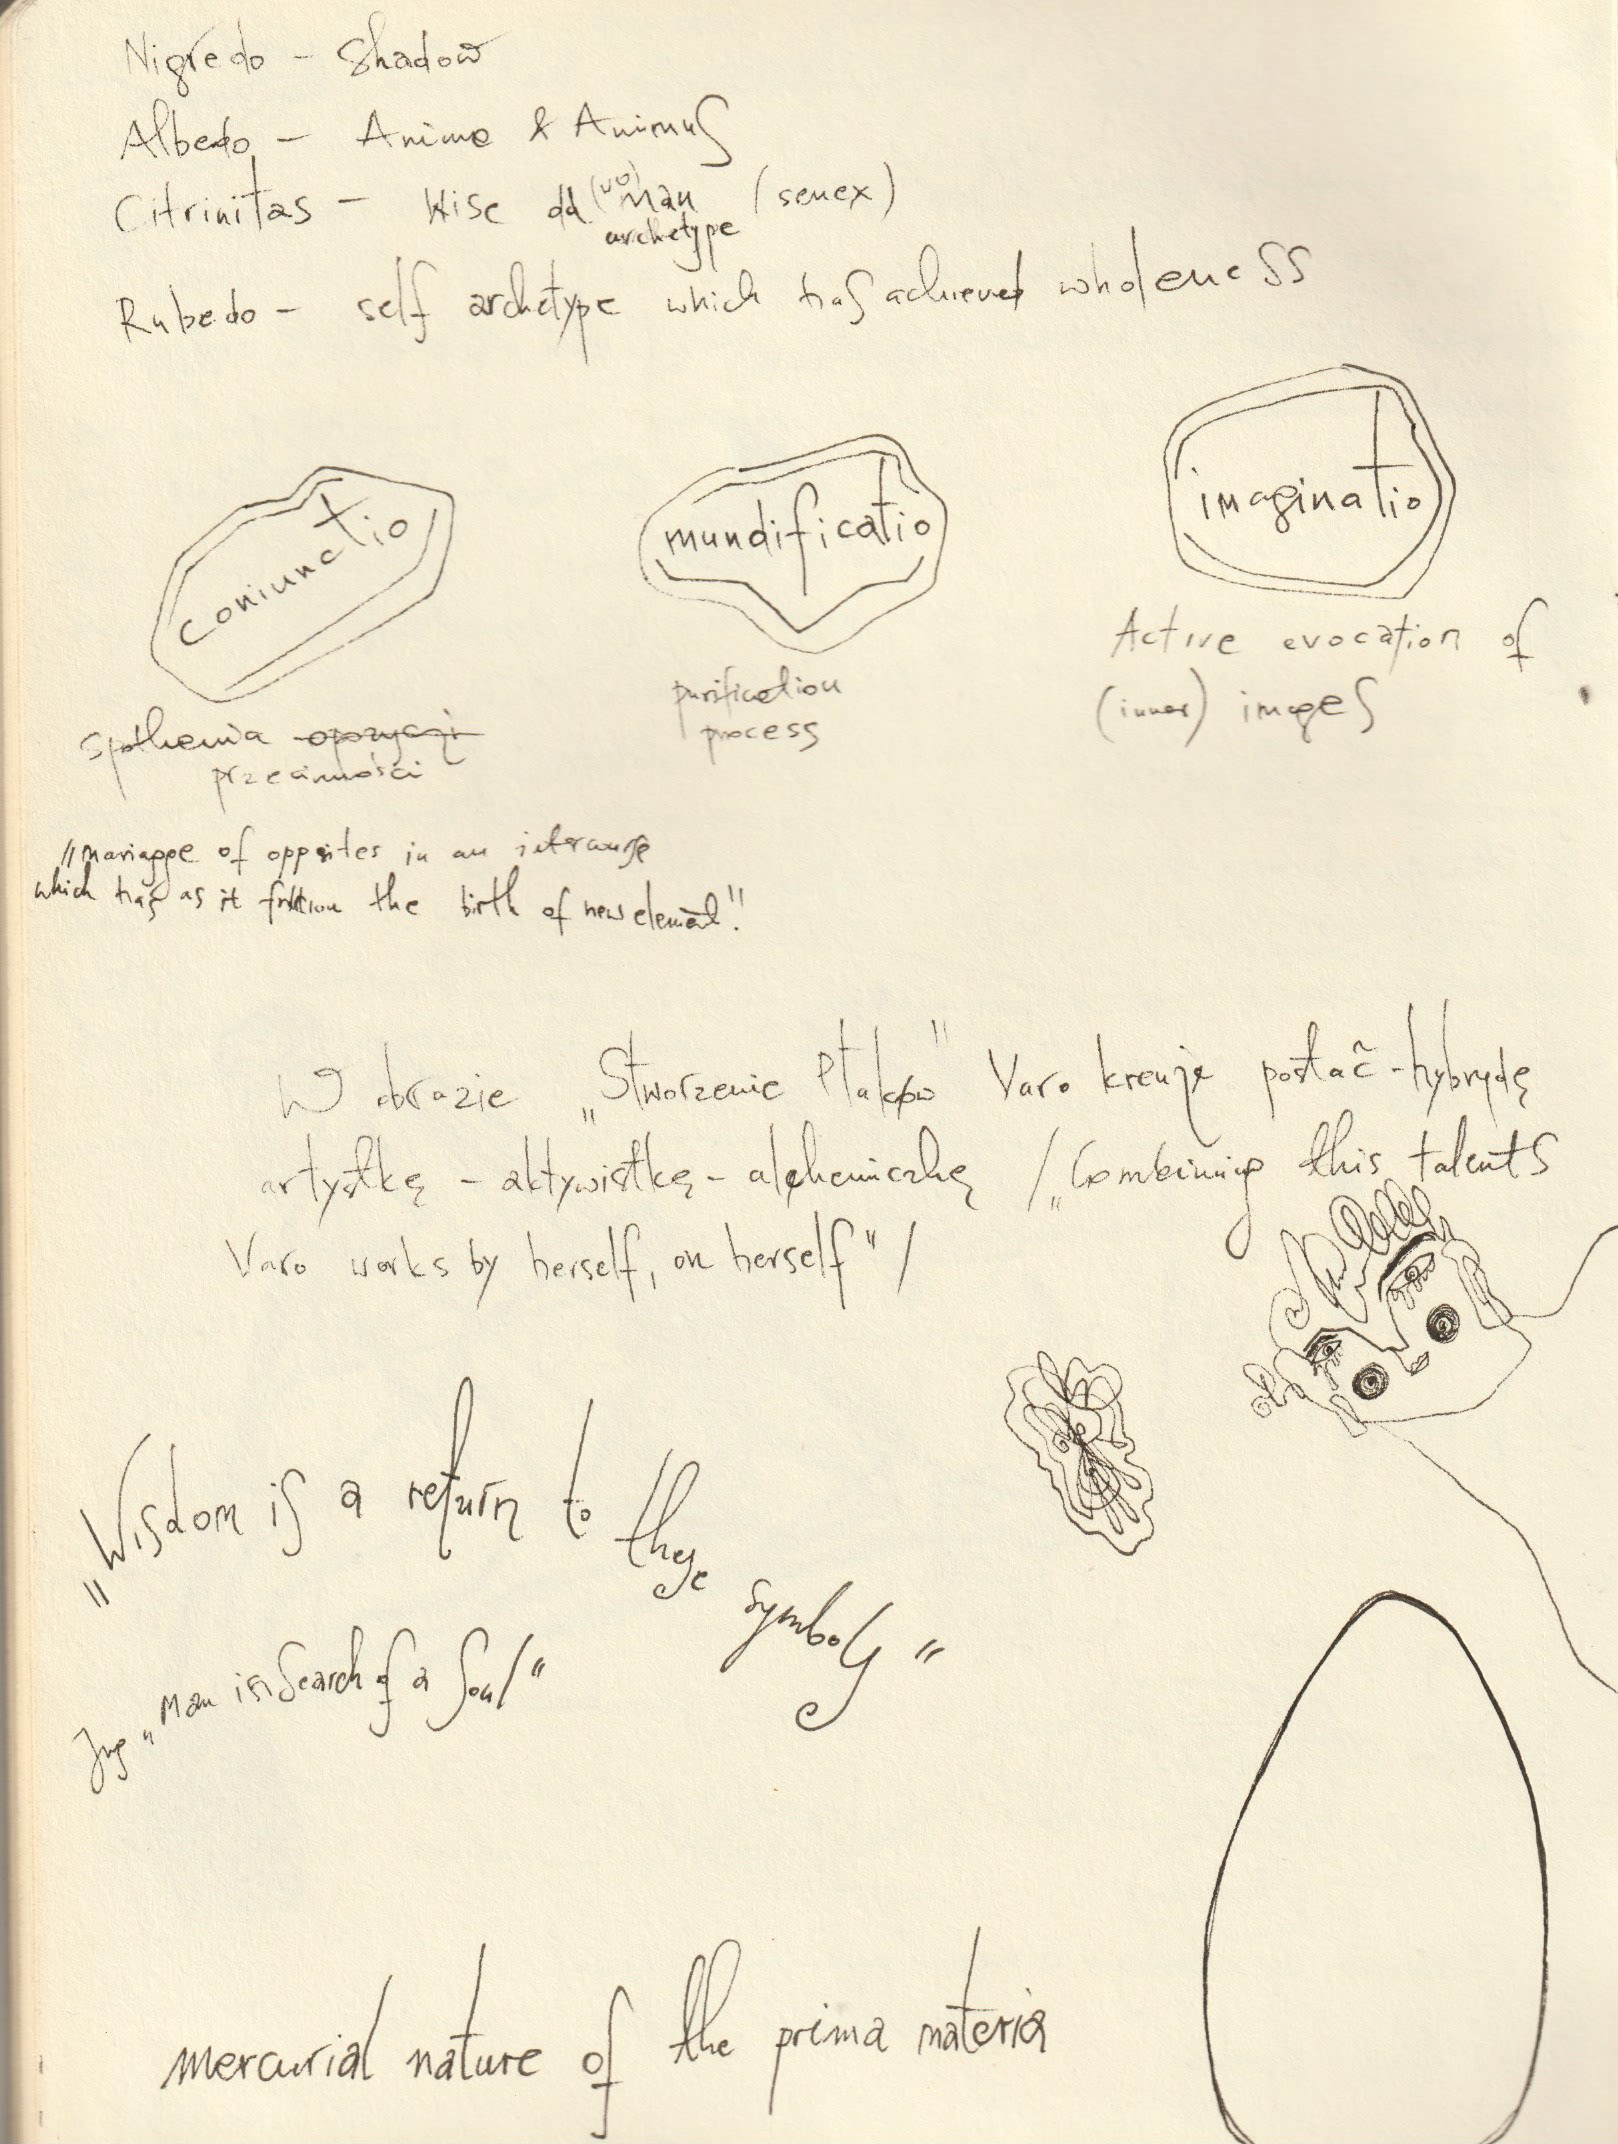 Nigredo - Shadow
Albedo - Anima & Animus
Citrinitas - Wise old (wo)man (senex)
archetype
Rubedo - self archetype which has achieved wholeness
coniunctio
mundificatio
imaginatio
Active evocation of
(inner) images
purification
process
opozycji
"mariagge of opposites in an
which has as it the birth of new element".
W obrazie „Stworzenie Ptaków" Varo kreuje postać-hybrydę
artystkę - aktywistkę - alchemiczkę / „Combining this talents
Varo works by herself, on herself" /
„Wisdom is a return to these symbols"
Jung „Man in Search of a Soul"
mercurial nature of the prima materia